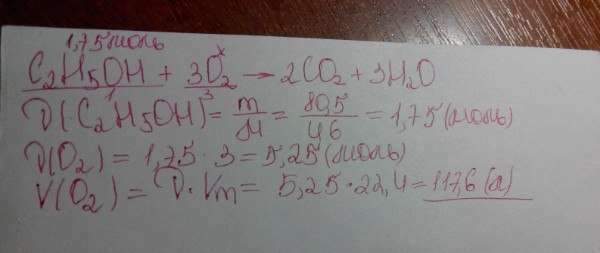 1,75 моль x
C2H5OH + 3O2 → 2CO2 + 3H2O
1 3
ν(C2H5OH) = m/M = 80,5/46 = 1,75 (моль)
ν(O2) = 1,75 · 3 = 5,25 (моль)
V(O2) = ν · Vm = 5,25 · 22,4 = 117,6 (л)